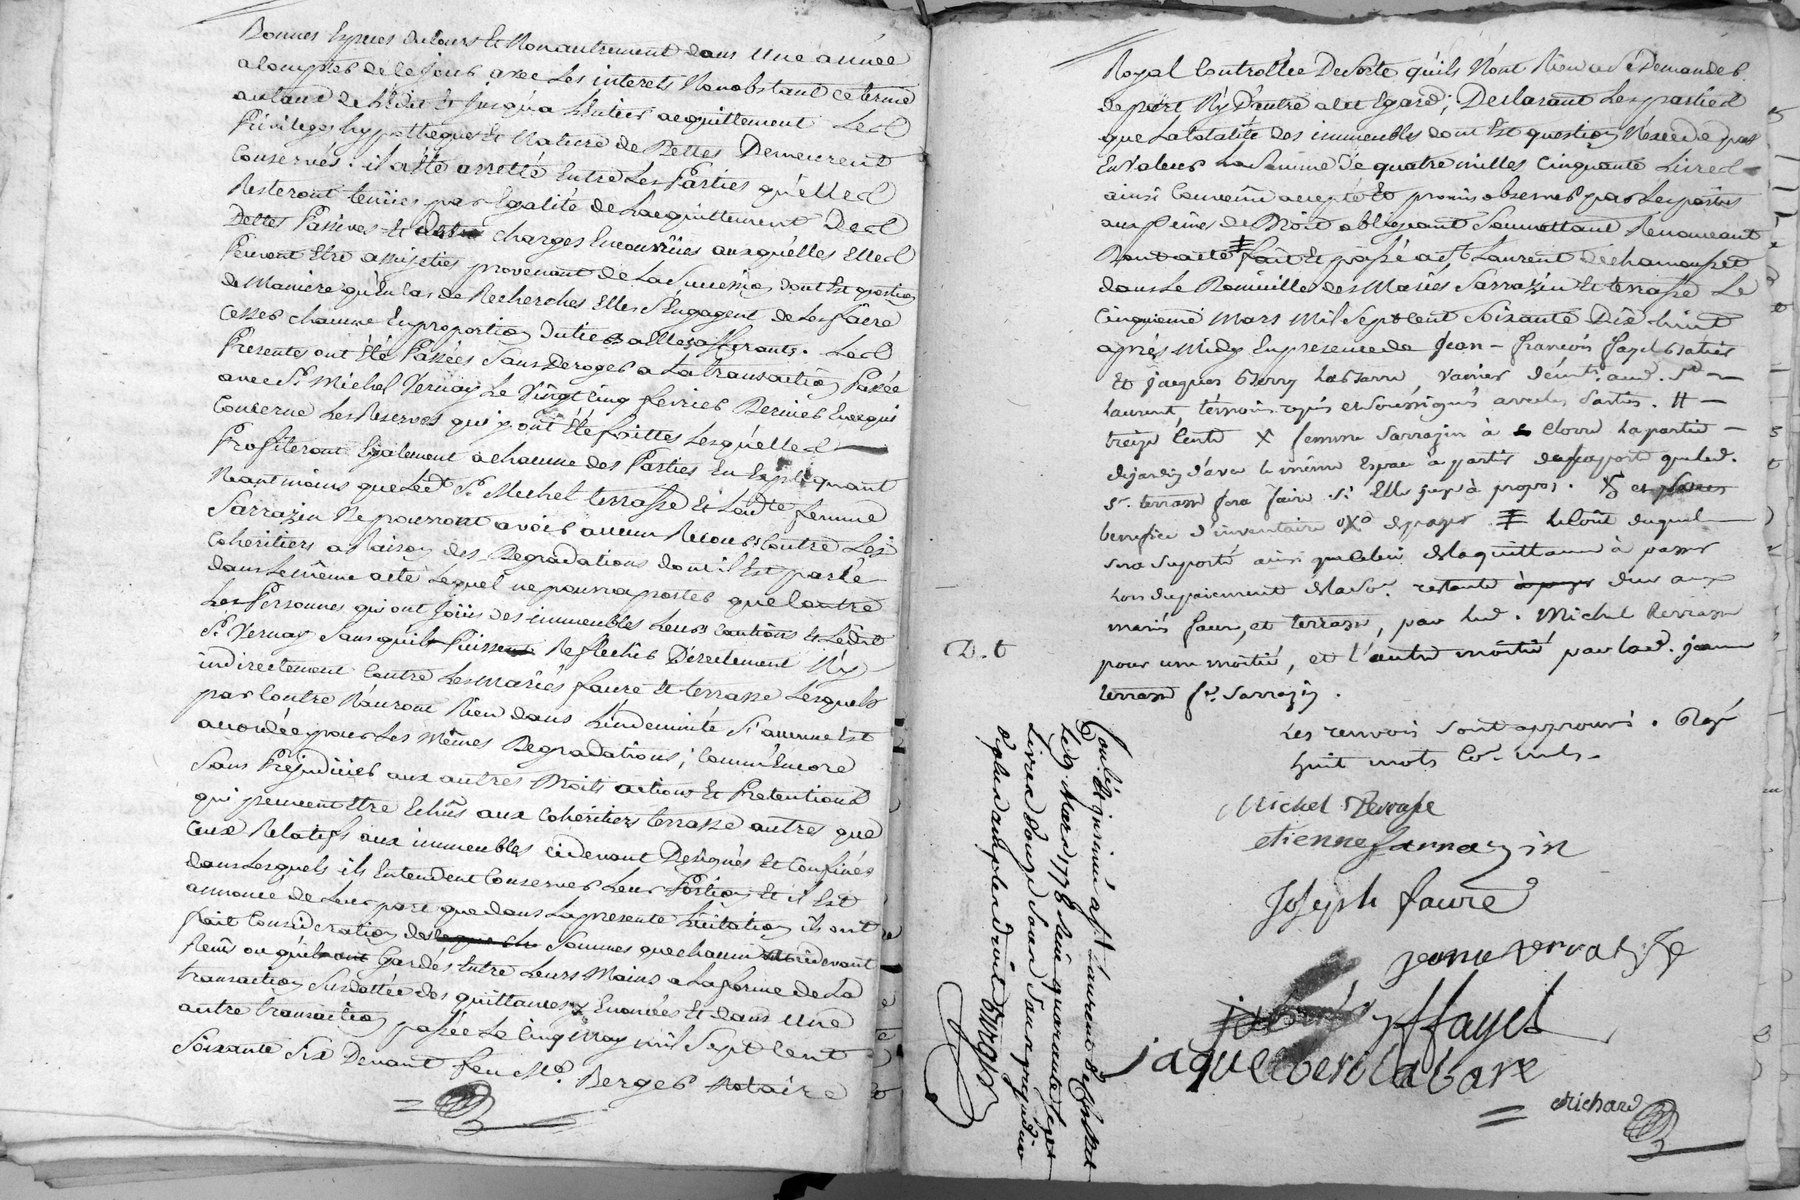 Bonnes Especes du Cours et Non autrement dans Une année
a Compter de Ce Jour avec Les interets Nonobstant Ce terme
au taux de L'Edit Et Jusqu'a L'Entier acquittement Led
Privileges hypotheques Et Nature de Dettes Demeurent
Conservés. il a été arretté Entre Les Parties qu'elled
Resteront tenües par Egalité de L'acquittement Ded
Dettes Passives Et charges Encourrües auxquelles Elled
Peuvent Etre assujeties provenant de La Succession dont Est question
de Maniere qu'En Cas de Recherches Elles S'Engagent de Les faire
Cesser chacune En proportion Led
Presentes ont Eté Passées Sans Deroger a La transaction Passée
avec Sr. Michel Vernay Le Vingt Cinq fevrier Dernier En Ce qui
Concerne Les Reserves qui y ont Eté faittes Lesquelled
Profiteront Egalement a chacune des Parties En Expliquant
Neantmoins que Led. Sr. Michel terrasse Et Lad.te femme
Sarrazin Ne pourront avoir aucun Recours Contre Les
Coheritiers a Raison des Degradations dont il Est parlé
dans Le même acte Lequel ne pourra porter que Contre
Les Personnes qui ont Joüis des immeubles Leurs Cautions Et Ledit
Sr. Vernay Sans qu'il Reflechir Directement Ny
indirectement Contre Les Mariés faure Et terrasse Lesquels
par Contre N'auront Rien dans L'indemnité Si aucune Est
accordée pour Les Mêmes Degradations; Comm'Encore
Sans Prejudicier aux autres Droits actions Et Pretentions
qui peuvent Etre Echus aux Coheritiers terrasse autres que
Ceux Relatifs aux immeubles cidevant Designés Et Confinés
dans Lesquels ils Entendent Conserver Leur Portion Et il Est
annoncé de Leur part que dans La presente Licitation ils ont
fait Consideration des Sommes que chacun cidevant
Reçus ou gardés Entre Leurs Mains a La forme de La
transaction Susdattée des quittances Enoncées Et dans Une
autre transaction passée Le Cinq May mil Sept Cent
Soixante Six Devant feu Me. Berger Notaire
Royal Controllée De Sorte qu'ils N'ont Rien a Se Demander
de part Ny D'autre a cet Egard; Declarant Les partied
que La totalité des immeubles dont Est question N'excede pas
En Valeur La Somme de quatre milles Cinquante Livred
ainsi Convenu accepté Et promis observer par Les parties
aux peines de Droit obligeant Soumettant Renonceant
Dont acte fait Et passé a St. Laurent de chamousset
dans Le Domicille des Mariés Sarrazin Et terrasse Le
Cinquieme Mars Mil Sept Cent Soixante Dix huit
aprés Midy En presence de Jean-francois
Et jacques Labarre,
Laurent, témoins requis et soussignés avec les Parties. #
treize Cents X femme Sarrazin à Clorre la partie
de jardin d'avec le même Espace à partir
Sr. terrasse fera faire Si Elle juge à propos.
benefice d'inventaire le Coût duquel
sera suporté ainsi que Celui de la quittance à passer
lors du paiement de la So. restante due aux
mariés faure, et terrasse, par led. Michel Terrasse
pour une moitié, et l'autre moitié par lad. jeanne
terrasse fe. Sarrazin.
D.t
Les renvois sont approuvés. Rayé
huit mots Co. nuls.
Michel Terrasse
etienne Sarrazin
Joseph faure
jeane terrasse
jffayel
jaque labare
Richard
Controllé insinué a St. Laurent de Chamousset
Le 9 Mars 1778 Reçu quarante Sept
Livres douze Sous Sans prejudice
de plus amples droits